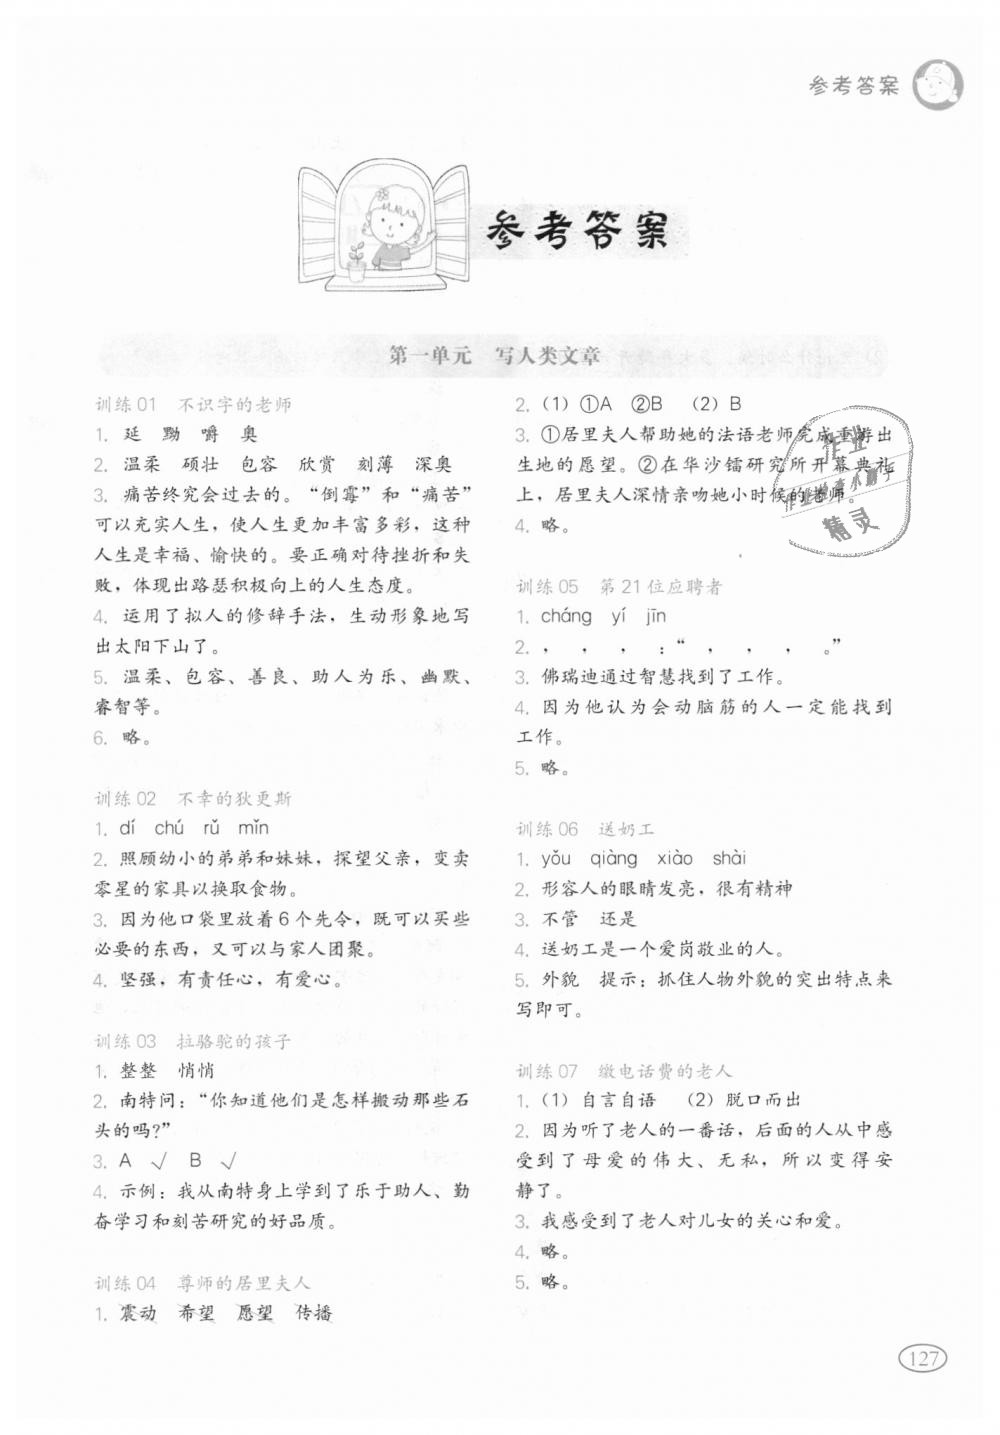 参考答案
参考答案
第一单元 写人类文章
训练01 不识字的老师
1. 延 黝 嚼 奥
2. 温柔 硕壮 包容 欣赏 刻薄 深奥
3. 痛苦终究会过去的。“倒霉”和“痛苦”
可以充实人生，使人生更加丰富多彩，这种
人生是幸福、愉快的。要正确对待挫折和失
败，体现出路瑟积极向上的人生态度。
4. 运用了拟人的修辞手法，生动形象地写
出太阳下山了。
5. 温柔、包容、善良、助人为乐、幽默、
睿智等。
6. 略。
训练02 不幸的狄更斯
1. dí chú rǔ mǐn
2. 照顾幼小的弟弟和妹妹，探望父亲，变卖
零星的家具以换取食物。
3. 因为他口袋里放着6个先令，既可以买些
必要的东西，又可以与家人团聚。
4. 坚强，有责任心，有爱心。
训练03 拉骆驼的孩子
1. 整整 悄悄
2. 南特问：“你知道他们是怎样搬动那些石
头的吗?”
3. A √ B √
4. 示例：我从南特身上学到了乐于助人、勤
奋学习和刻苦研究的好品质。
训练04 尊师的居里夫人
1. 震动 希望 愿望 传播
2.（1）①A ②B （2）B
3. ①居里夫人帮助她的法语老师完成重游出
生地的愿望。②在华沙镭研究所开幕典礼
上，居里夫人深情亲吻她小时候的老师。
4. 略。
训练05 第21位应聘者
1. cháng yí jīn
2. ， ， ， ：“ ， ， ， 。”
3. 佛瑞迪通过智慧找到了工作。
4. 因为他认为会动脑筋的人一定能找到
工作。
5. 略。
训练06 送奶工
1. yǒu qiàng xiào shài
2. 形容人的眼睛发亮，很有精神
3. 不管 还是
4. 送奶工是一个爱岗敬业的人。
5. 外貌 提示：抓住人物外貌的突出特点来
写即可。
训练07 缴电话费的老人
1.（1）自言自语 （2）脱口而出
2. 因为听了老人的一番话，后面的人从中感
受到了母爱的伟大、无私，所以变得安
静了。
3. 我感受到了老人对儿女的关心和爱。
4. 略。
5. 略。
作业
精灵
127